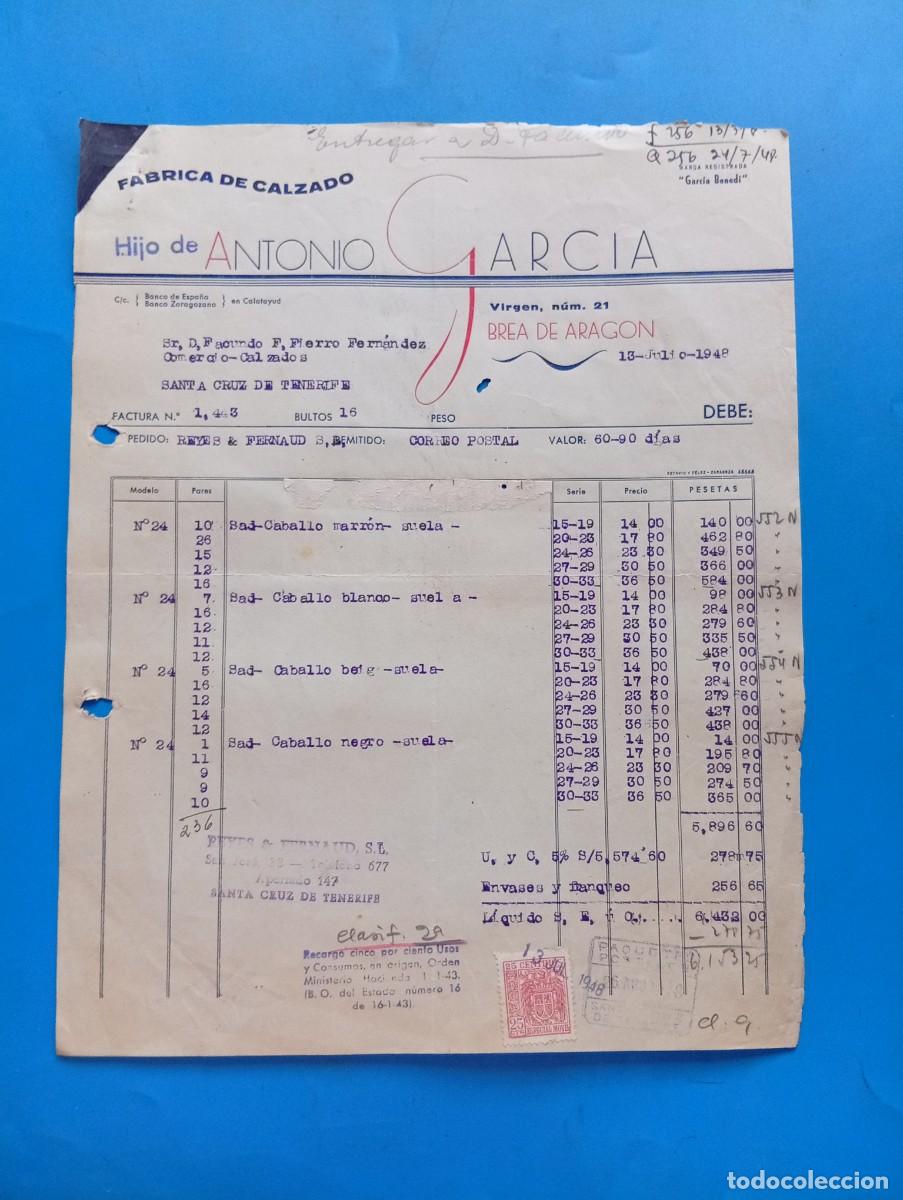 Entregar a D.
f 256 13/7/4
Q 256 24/7/48
MARCA REGISTRADA
"García Benedí"
FABRICA DE CALZADO
Hijo de ANTONIO GARCIA
C/c. { Banco de España
Banco Zaragozano } en Calatayud
Virgen, núm. 21
BREA DE ARAGON
Sr, D, Facundo F, Fierro Fernández
Comercio-Calzados
13-Julio-1948
SANTA CRUZ DE TENERIFE
FACTURA N.° 1,443 BULTOS 16 PESO DEBE:
PEDIDO: REYES & FERNAUD S,L, REMITIDO: CORREO POSTAL VALOR: 60-90 días
Modelo Pares Serie Precio PESETAS
Nº 24 10 Sad-Caballo marrón- suela - 15-19 14 00 140 00 552 N
26 20-23 17 80 462 80 "
15 24-26 23 30 349 50 "
12 27-29 30 50 366 00 "
16 30-33 36 50 584 00 "
Nº 24 7 Sad- Caballo blanco- suel a - 15-19 14 00 98 00 553 N
16 20-23 17 80 284 80 "
12 24-26 23 30 279 60 "
11 27-29 30 50 335 50 "
12 30-33 36 50 438 00 "
Nº 24 5 Sad- Caballo beig -suela- 15-19 14 00 70 00 554 N
16 20-23 17 80 284 80 "
12 24-26 23 30 279 60 "
14 27-29 30 50 427 00 "
12 30-33 36 50 438 00 "
Nº 24 1 Sad- Caballo negro -suela- 15-19 14 00 14 00 555
11 20-23 17 80 195 80 "
9 24-26 23 30 209 70 "
9 27-29 30 50 274 50 "
10 30-33 36 50 365 00 "
236
5,896 60
REYES & FERNAUD, S.L.
Teléfono 677
Apartado 147
SANTA CRUZ DE TENERIFE
U, y C, 5% S/5,574'60 278 75
Envases y franqueo 256 65
Líquido S, E, ú O,..... 6,432 00
- 278 75
6,153 25
clasif. 2ª
Recargo cinco por ciento Usos
y Consumos, en origen, Orden
Ministerio Hacienda 1-1-43.
(B. O. del Estado número 16
de 16-1-43).
13 JUL
1948
25 CENTIMOS
25
CTS
ESPECIAL MOVIL
PAQUETE
POSTAL
todocoleccion